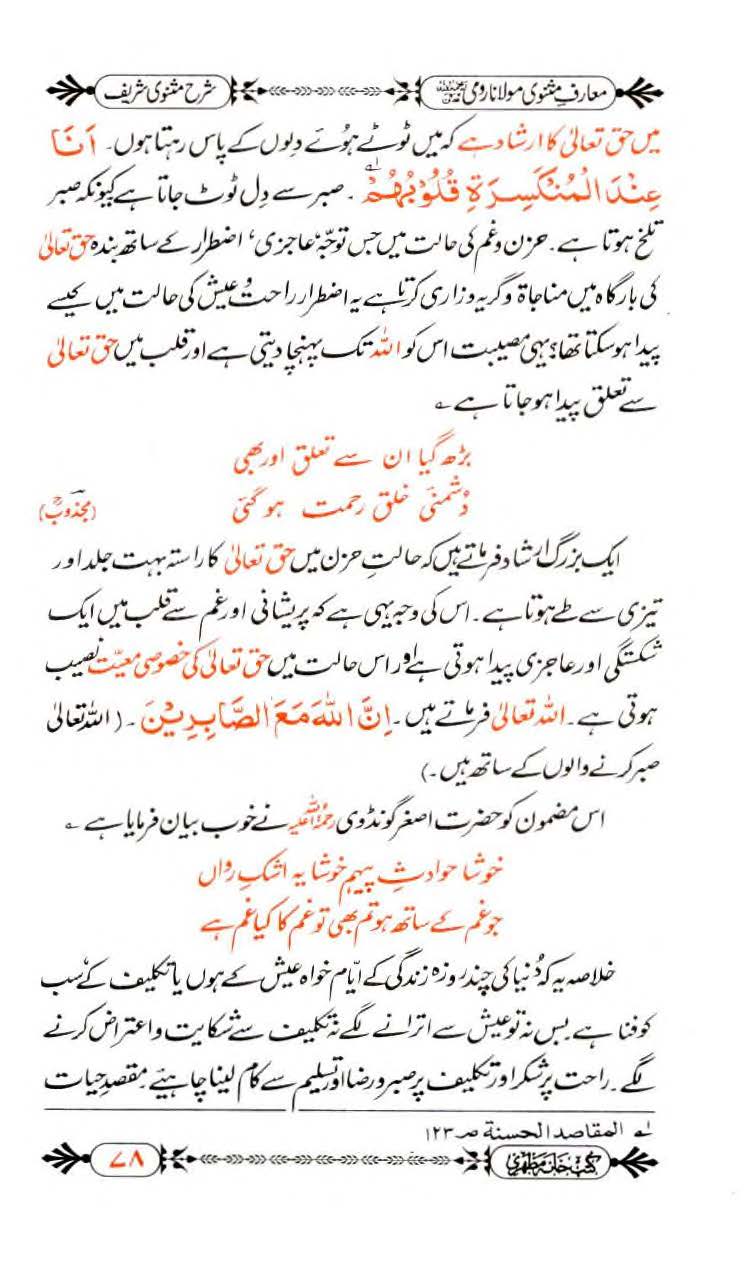 معارفِ مثنوی مولانا رومی رحمۃ اللہ علیہ
شرح مثنوی شریف
میں حق تعالیٰ کا ارشاد ہے کہ میں ٹوٹے ہوئے دِلوں کے پاس رہتا ہوں۔ اَنَا
عِنْدَ الْمُنْكَسِرَةِ قُلُوْبُهُمْ ۱؎ ۔ صبر سے دِل ٹوٹ جاتا ہے کیونکہ صبر
تلخ ہوتا ہے۔ حزن و غم کی حالت میں جس توجّہ، عاجزی، اضطرار کے ساتھ بندہ حق تعالیٰ
کی بارگاہ میں مناجاۃ و گریہ وزاری کرتا ہے یہ اضطرار راحت و عیش کی حالت میں کیسے
پیدا ہو سکتا تھا؟ یہی مصیبت اس کو اللہ تک پہنچا دیتی ہے اور قلب میں حق تعالیٰ
سے تعلق پیدا ہو جاتا ہے ؎
بڑھ گیا ان سے تعلق اور بھی
دُشمنیٔ خلق رحمت ہو گئی (مجذوبؒ)
ایک بزرگ ارشاد فرماتے ہیں کہ حالتِ حزن میں حق تعالیٰ کا راستہ بہت جلد اور
تیزی سے طے ہوتا ہے۔ اس کی وجہ یہی ہے کہ پریشانی اور غم سے قلب میں ایک
شکستگی اور عاجزی پیدا ہوتی ہے اور اس حالت میں حق تعالیٰ کی خصوصی معیّت نصیب
ہوتی ہے۔ اللہ تعالیٰ فرماتے ہیں۔ اِنَّ اللهَ مَعَ الصَّابِرِيْنَ ۔ (اللہ تعالیٰ
صبر کرنے والوں کے ساتھ ہیں۔)
اس مضمون کو حضرت اصغر گونڈوی رحمۃ اللہ علیہ نے خوب بیان فرمایا ہے ؎
خوشا حوادثِ پیہم خوشا یہ اشکِ رواں
جو غم کے ساتھ ہو تم بھی تو غم کا کیا غم ہے
خلاصہ یہ کہ دُنیا کی چند روزہ زندگی کے ایّام خواہ عیش کے ہوں یا تکلیف کے سب
کو فنا ہے بس نہ تو عیش سے اترانے لگے نہ تکلیف سے شکایت و اعتراض کرنے
لگے۔ راحت پر شکر اور تکلیف پر صبر و رضا اور تسلیم سے کام لینا چاہیئے۔ مقصدِ حیات
۱؎ المقاصد الحسنة صـ ۱۲۳
کتب خانہ مظہری
۷۸